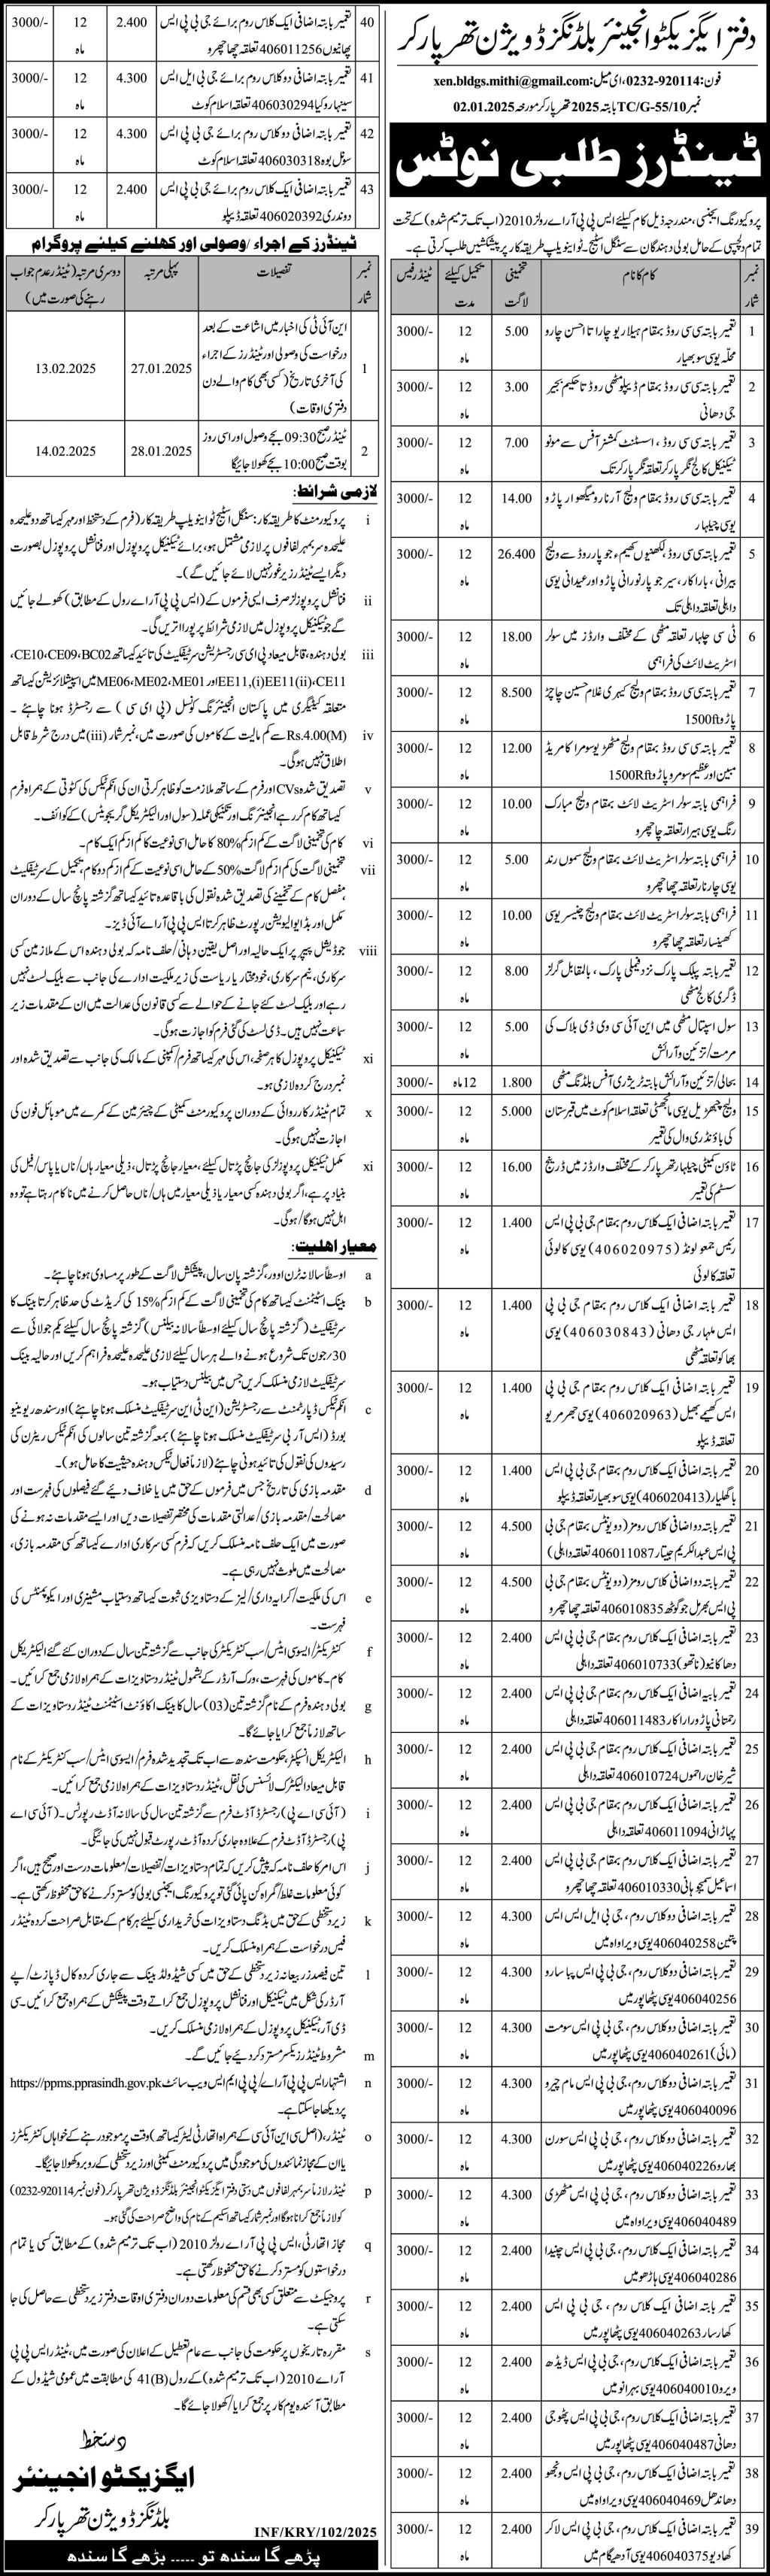 دفتر ایگزیکٹو انجینئر بلڈنگز ڈویژن تھرپارکر
فون:0232-920114، ای میل:xen.bldgs.mithi@gmail.com
نمبر TC/G-55/10 بابتہ 2025 تھرپارکر مورخہ 02.01.2025
ٹینڈرز طلبی نوٹس
پروکیورنگ ایجنسی، مندرجہ ذیل کام کیلئے ایس پی پی آر اے رولز 2010 (اب تک ترمیم شدہ) کے تحت
تمام دلچسپی کے حامل بولی دہندگان سے سنگل اسٹیج۔ ٹو اینویلپ طریقہ کار پر پیشکشیں طلب کرتی ہے۔
نمبر شمار | کام کا نام | تخمینی لاگت | تکمیل کیلئے مدت | ٹینڈر فیس
1 تعمیر بابتہ سی سی روڈ بمقام ہیلاریو چارا تا احسن چارو 5.00 12 3000/-
محلہ یوسی سوبھیار ماہ
2 تعمیر بابتہ سی سی روڈ بمقام ڈیپلو مٹھی روڈ تا حکیم بجیر 3.00 12 3000/-
جی دھانی ماہ
3 تعمیر بابتہ سی سی روڈ، اسسٹنٹ کمشنر آفس سے مونو 7.00 12 3000/-
ٹیکنیکل کالج نگرپارکر تعلقہ نگرپارکر تک ماہ
4 تعمیر بابتہ سی سی روڈ بمقام ولیج آرنارو میگھوار پاڑو 14.00 12 3000/-
یوسی چیلہار ماہ
5 تعمیر بابتہ سی سی روڈ، لکھنیوں کھیمے جو پار روڈ سے ولیج 26.400 12 3000/-
بیرانی، باراکار، سیر جو پار نورانی پاڑو اور عیدانی یوسی ماہ
داہلی تعلقہ داہلی تک
6 ٹی سی چیلہار تعلقہ مٹھی کے مختلف وارڈز میں سولر 18.00 12 3000/-
اسٹریٹ لائٹ کی فراہمی ماہ
7 تعمیر بابتہ سی سی روڈ بمقام ولیج کیہری غلام حسین چاچڑ 8.500 12 3000/-
پاڑو 1500ft ماہ
8 تعمیر بابتہ سی سی روڈ بمقام ولیج مٹھڑیو سومرا کامریڈ 12.00 12 3000/-
مبین اور عظیم سومرو پاڑو 1500Rft ماہ
9 فراہمی بابتہ سولر اسٹریٹ لائٹ بمقام ولیج مبارک 10.00 12 3000/-
رنگ یوسی ہیرار تعلقہ چاچھرو ماہ
10 فراہمی بابتہ سولر اسٹریٹ لائٹ بمقام ولیج سموں رند 5.00 12 3000/-
یوسی چارنار تعلقہ چھاچھرو ماہ
11 فراہمی بابتہ سولر اسٹریٹ لائٹ بمقام ولیج چنیسر یوسی 10.00 12 3000/-
کھینسار تعلقہ چھاچھرو ماہ
12 تعمیر بابتہ پبلک پارک نزد فیملی پارک، بالمقابل گرلز 8.00 12 3000/-
ڈگری کالج مٹھی ماہ
13 سول اسپتال مٹھی میں این آئی سی وی ڈی بلاک کی 5.00 12 3000/-
مرمت/تزئین و آرائش ماہ
14 بحالی/تزئین و آرائش بابتہ ٹریژری آفس بلڈنگ مٹھی 1.800 12 ماہ 3000/-
15 ولیج چھڑیل یوسی مانجھٹی تعلقہ اسلام کوٹ میں قبرستان 5.000 12 3000/-
کی باؤنڈری وال کی تعمیر ماہ
16 ٹاؤن کمیٹی چیلہار تھرپارکر کے مختلف وارڈز میں ڈرینج 16.00 12 3000/-
سسٹم کی تعمیر ماہ
17 تعمیر بابتہ اضافی ایک کلاس روم بمقام جی بی پی ایس 1.400 12 3000/-
رئیس جمعو لونڈ (406020975) یوسی کالوئی ماہ
تعلقہ کالوئی
18 تعمیر بابتہ اضافی ایک کلاس روم بمقام جی بی پی 1.400 12 3000/-
ایس ملہار جی دھانی (406030843) یوسی ماہ
بھاکو تعلقہ مٹھی
19 تعمیر بابتہ اضافی ایک کلاس روم بمقام جی بی پی 1.400 12 3000/-
ایس کھیے بھیل (406020963) یوسی جھرمریو ماہ
تعلقہ ڈیپلو
20 تعمیر بابتہ اضافی ایک کلاس روم بمقام جی بی پی ایس 1.400 12 3000/-
باگھلیار (406020413) یوسی سوبھیار تعلقہ ڈیپلو ماہ
21 تعمیر بابتہ دو اضافی کلاس رومز (دو یونٹس بمقام جی بی 4.500 12 3000/-
پی ایس عبدالکریم جیتار 406011087 تعلقہ داہلی) ماہ
22 تعمیر بابتہ دو اضافی کلاس رومز (دو یونٹس بمقام جی بی 4.500 12 3000/-
پی ایس بھرمل جو گوٹھ 406010835 تعلقہ چھاچھرو ماہ
23 تعمیر بابتہ اضافی ایک کلاس روم بمقام جی بی پی ایس 2.400 12 3000/-
دھاکانیو (ناتھو) 406010733 تعلقہ داہلی ماہ
24 تعمیر بابیہ اضافی ایک کلاس روم بمقام جی بی پی ایس 2.400 12 3000/-
رحمتانی پاڑو راراکار 406011483 تعلقہ داہلی ماہ
25 تعمیر بابتہ اضافی ایک کلاس روم بمقام جی بی پی ایس 2.400 12 3000/-
شیر خان راہموں 406010724 تعلقہ داہلی ماہ
26 تعمیر بابتہ اضافی ایک کلاس روم بمقام جی بی پی ایس 2.400 12 3000/-
پہاڑانی 406011094 تعلقہ داہلی ماہ
27 تعمیر بابتہ اضافی ایک کلاس روم بمقام جی بی پی ایس 2.400 12 3000/-
اسماعیل سمیجو ہانی 406010330 تعلقہ چھاچھرو ماہ
28 تعمیر بابتہ اضافی دو کلاس روم، جی بی ایل ایس ایس 4.300 12 3000/-
پتین 406040258 یوسی ویراواہ میں ماہ
29 تعمیر بابتہ اضافی دو کلاس روم، جی بی پی ایس پیاسارو 4.300 12 3000/-
406040256 یوسی پٹھاپور میں ماہ
30 تعمیر بابتہ اضافی دو کلاس روم، جی بی پی ایس سومت 4.300 12 3000/-
(مائی) 406040261 یوسی پٹھاپور میں ماہ
31 تعمیر بابتہ اضافی دو کلاس روم، جی بی پی ایس مام چیرو 4.300 12 3000/-
406040096 یوسی پٹھاپور میں ماہ
32 تعمیر بابتہ اضافی دو کلاس روم، جی بی پی ایس سورن 4.300 12 3000/-
بھارو 406040226 یوسی پٹھاپور میں ماہ
33 تعمیر بابتہ اضافی دو کلاس روم، جی بی پی ایس مٹھڑی 4.300 12 3000/-
406040489 یوسی ویراواہ میں ماہ
34 تعمیر بابتہ اضافی ایک کلاس روم، جی بی پی ایس چنیدا 2.400 12 3000/-
406040286 یوسی ہاڑھو میں ماہ
35 تعمیر بابتہ اضافی ایک کلاس روم، جی بی پی ایس 2.400 12 3000/-
کھارسار 406040263 یوسی پٹھاپور میں ماہ
36 تعمیر بابتہ اضافی ایک کلاس روم، جی بی پی ایس ڈیڈھ 2.400 12 3000/-
ویرو 406040010 یوسی بہرانو میں ماہ
37 تعمیر بابتہ اضافی ایک کلاس روم، جی بی پی ایس پتوجی 2.400 12 3000/-
دھانی 406040487 یوسی پٹھاپور میں ماہ
38 تعمیر بابتہ اضافی ایک کلاس روم، جی بی پی ایس ونجھو 2.400 12 3000/-
دھاندھل 406040469 یوسی ویراواہ میں ماہ
39 تعمیر بابتہ اضافی ایک کلاس روم، جی بی پی ایس لاکر 2.400 12 3000/-
کھادیو 406040375 یوسی آدھیگام میں ماہ
40 تعمیر بابتہ اضافی ایک کلاس روم برائے جی بی پی ایس 2.400 12 3000/-
پھانیوں 406011256 تعلقہ چھاچھرو ماہ
41 تعمیر بابتہ اضافی دو کلاس روم برائے جی بی ایل ایس 4.300 12 3000/-
سینہاروکیا 406030294 تعلقہ اسلام کوٹ ماہ
42 تعمیر بابتہ اضافی دو کلاس روم برائے جی بی پی ایس 4.300 12 3000/-
سونل بوہ 406030318 تعلقہ اسلام کوٹ ماہ
43 تعمیر بابتہ اضافی ایک کلاس روم برائے جی بی پی ایس 2.400 12 3000/-
دوندری 406020392 تعلقہ ڈیپلو ماہ
ٹینڈرز کے اجراء /وصولی اور کھلنے کیلئے پروگرام
نمبر شمار | تفصیلات | پہلی مرتبہ | دوسری مرتبہ (ٹینڈر عدم جواب رہنے کی صورت میں)
1 این آئی ٹی کی اخبار میں اشاعت کے بعد
درخواست کی وصولی اور ٹینڈرز کے اجراء
کی آخری تاریخ (کسی بھی کام والے دن 27.01.2025 13.02.2025
دفتری اوقات)
2 ٹینڈر صبح 09:30 بجے وصول اور اسی روز 28.01.2025 14.02.2025
بوقت صبح 10:00 بجے کھولا جائیگا
لازمی شرائط:
i پروکیورمنٹ کا طریقہ کار: سنگل اسٹیج ٹو اینویلپ طریقہ کار (فرم کے دستخط اور مہر کیساتھ دو علیحدہ
علیحدہ سربمہر لفافوں پر لازمی مشتمل ہو، برائے ٹیکنیکل پروپوزل اور فنانشل پروپوزل بصورت
دیگر ایسے ٹینڈر زیر غور نہیں لائے جائیں گے)۔
ii فنانشل پروپوزلز صرف ایسی فرموں کے (ایس پی پی آر اے رول کے مطابق) کھولے جائیں
گے جو ٹیکنیکل پروپوزل میں لازمی شرائط پر پورا اتریں گی۔
iii بولی دہندہ، قابل میعاد پی ای سی رجسٹریشن سرٹیفکیٹ کی تائید کیساتھ CE10، CE09، BC02،
CE11، (ii)EE11، (i)EE11 اور ME01، ME02، ME06 میں اسپیشلائزیشن کیساتھ
متعلقہ کیٹیگری میں پاکستان انجینئرنگ کونسل (پی ای سی) سے رجسٹرڈ ہونا چاہئے۔
iv Rs.4.00(M) سے کم مالیت کے کاموں کی صورت میں، نمبر شمار (iii) میں درج شرط قابل
اطلاق نہیں ہوگی۔
v تصدیق شدہ CVs اور فرم کے ساتھ ملازمت کو ظاہر کرتی ان کی انکم ٹیکس کی کٹوتی کے ہمراہ فرم
کیساتھ کام کر رہے انجینئرنگ اور تکنیکی عملہ (سول اور الیکٹریکل گریجویٹس) کے کوائف۔
vi کام کی تخمینی لاگت کے کم از کم %80 کا حامل اسی نوعیت کا کم از کم ایک کام۔
vii تخمینی لاگت کی کم از کم لاگت %50 کے حامل اسی نوعیت کے کم از کم دو کام، تکمیل کے سرٹیفکیٹ
، مفصل کام کے تخمینے کی تصدیق شدہ نقول کی باقاعدہ تائید کیساتھ گزشتہ پانچ سال کے دوران
مکمل اور بڈ ایوالیویشن رپورٹ ظاہر کرتا ایس پی پی آر اے آئی ڈیز۔
viii جوڈیشل پیپر پر ایک حالیہ اور اصل یقین دہانی/حلف نامہ کہ بولی دہندہ اس کے ملازمین کسی
سرکاری، نیم سرکاری، خودمختار یا ریاست کی زیر ملکیت ادارے کی جانب سے بلیک لسٹ نہیں
رہے اور بلیک لسٹ کئے جانے کے حوالے سے کسی قانون کی عدالت میں ان کے مقدمات زیر
سماعت نہیں ہیں۔ ڈی لسٹ کی گئی فرم کو اجازت ہوگی۔
xi ٹیکنیکل پروپوزل کا ہر صفحہ، اس کی مہر کیساتھ فرم/کمپنی کے مالک کی جانب سے تصدیق شدہ اور
نمبر درج کردہ لازمی ہو۔
x تمام ٹینڈر کارروائی کے دوران پروکیورمنٹ کمیٹی کے چیئرمین کے کمرے میں موبائل فون کی
اجازت نہیں ہوگی۔
xi مکمل ٹیکنیکل پروپوزلز کی جانچ پڑتال کیلئے، معیار جانچ پڑتال، ذیلی معیار ہاں/ناں یا پاس/فیل کی
بنیاد پر ہے، اگر بولی دہندہ کسی معیار یا ذیلی معیار میں ہاں/ناں حاصل کرنے میں ناکام رہتا ہے تو وہ
اہل نہیں ہوگا/ہوگی۔
معیار اہلیت:
a اوسطاً سالانہ ٹرن اوور، گزشتہ پان سال، پیشکش لاگت کے طور پر مساوی ہونا چاہئے۔
b بینک اسٹیٹمنٹ کیساتھ کام کی تخمینی لاگت کے کم از کم %15 کی کریڈٹ کی حد ظاہر کرتا بینک کا
سرٹیفکیٹ (گزشتہ پانچ سال کیلئے اوسطاً سالانہ بیلنس) گزشتہ پانچ سال کیلئے یکم جولائی سے
30/جون تک شروع ہونے والے ہر سال کیلئے لازمی علیحدہ علیحدہ فراہم کریں اور حالیہ بینک
سرٹیفکیٹ لازمی منسلک کریں جس میں بیلنس دستیاب ہو۔
c انکم ٹیکس ڈپارٹمنٹ سے رجسٹریشن (این ٹی این سرٹیفکیٹ منسلک ہونا چاہئے) اور سندھ ریونیو
بورڈ (ایس آر بی سرٹیفکیٹ منسلک ہونا چاہئے) بمعہ گزشتہ تین سالوں کی انکم ٹیکس ریٹرن کی
رسیدوں کی نقول کی تائید ہونی چاہئے (لازماً فعال ٹیکس دہندہ حیثیت کا حامل ہو)۔
d مقدمہ بازی کی تاریخ جس میں فرموں کے حق میں یا خلاف دیئے گئے فیصلوں کی فہرست اور
مصالحت/مقدمہ بازی/عدالتی مقدمات کی مختصر تفصیلات دیں اور ایسے مقدمات نہ ہونے کی
صورت میں ایک حلف نامہ منسلک کریں کہ فرم کسی سرکاری ادارے کیساتھ کسی مقدمہ بازی،
مصالحت میں ملوث نہیں رہی ہے۔
e اس کی ملکیت/کرایہ داری/لیز کے دستاویزی ثبوت کیساتھ دستیاب مشینری اور ایکوپمنٹس کی
فہرست۔
f کنٹریکٹر/ایسوسی ایٹس/سب کنٹریکٹر کی جانب سے گزشتہ تین سال کے دوران کئے گئے الیکٹریکل
کام۔ کاموں کی فہرست، ورک آرڈر کے بشمول ٹینڈر دستاویزات کے ہمراہ لازمی جمع کرائیں۔
g بولی دہندہ فرم کے نام گزشتہ تین (03) سال کا بینک اکاؤنٹ اسٹیٹمنٹ ٹینڈر دستاویزات کے
ساتھ لازماً جمع کرایا جائے گا۔
h الیکٹریکل انسپکٹر، حکومت سندھ سے اب تک تجدید شدہ فرم/ایسوسی ایٹس/سب کنٹریکٹر کے نام
قابل میعاد الیکٹرک لائسنس کی نقل، ٹینڈر دستاویزات کے ہمراہ لازمی جمع کرائیں۔
i (آئی سی اے پی) رجسٹرڈ آڈٹ فرم سے گزشتہ تین سال کی سالانہ آڈٹ رپورٹس۔ (آئی سی اے
پی) رجسٹرڈ آڈٹ فرم کے علاوہ جاری کردہ آڈٹ رپورٹ قبول نہیں کی جائیگی۔
j اس امر کا حلف نامہ کہ پیش کریں کہ تمام دستاویزات/تفصیلات/معلومات درست اور صحیح ہیں، اگر
کوئی معلومات غلط/گمراہ کن پائی گئی تو پروکیورنگ ایجنسی بولی کو مسترد کرنے کا حق محفوظ رکھتی ہے۔
k زیر دستخطی کے حق میں بڈنگ دستاویزات کی خریداری کیلئے ہر کام کے مقابل صراحت کردہ ٹینڈر
فیس درخواست کے ہمراہ منسلک کریں۔
l تین فیصد زر بیعانہ زیر دستخطی کے حق میں کسی شیڈولڈ بینک سے جاری کردہ کال ڈپازٹ/پے
آرڈر کی شکل میں ٹیکنیکل اور فنانشل پروپوزل جمع کراتے وقت پیشکش کے ہمراہ جمع کرائیں۔ سی
ڈی آر، ٹیکنیکل پروپوزل کے ہمراہ لازمی منسلک کریں۔
m مشروط ٹینڈرز یکسر مسترد کر دیئے جائیں گے۔
n اشتہار ایس پی پی آر اے/پی پی ایم ایس ویب سائٹ https://ppms.pprasindh.gov.pk
پر دیکھا جاسکتا ہے۔
o ٹینڈر، (اصل سی این آئی سی کے ہمراہ اتھارٹی لیٹر کیساتھ) وقت پر موجود رہنے کے خواہاں کنٹریکٹرز
یا ان کے مجاز نمائندوں کی موجودگی میں پروکیورمنٹ کمیٹی اور زیر دستخطی کے روبرو کھولا جائیگا۔
p ٹینڈر لازماً سربمہر لفافوں میں دستی دفتر ایگزیکٹو انجینئر بلڈنگز ڈویژن تھرپارکر (فون نمبر 0232-920114)
کو لازماً جمع کرانا ہوگا اور نمبر شمار کیساتھ اسکیم کے نام کی واضح صراحت کی گئی ہو۔
q مجاز اتھارٹی، ایس پی پی آر اے رولز 2010 (اب تک ترمیم شدہ) کے مطابق کسی یا تمام
درخواستوں کو مسترد کرنے کا حق محفوظ رکھتی ہے۔
r پروجیکٹ سے متعلق کسی بھی قسم کی معلومات دوران دفتری اوقات دفتر زیر دستخطی سے حاصل کی جا
سکتی ہے۔
s مقررہ تاریخوں پر حکومت کی جانب سے عام تعطیل کے اعلان کی صورت میں، ٹینڈر ایس پی پی
آر اے 2010 (اب تک ترمیم شدہ) کے رول 41(B) کی مطابقت میں عمومی شیڈول کے
مطابق آئندہ یوم کار پر جمع کرایا/کھولا جائے گا۔
دستخط
ایگزیکٹو انجینئر
بلڈنگز ڈویژن تھرپارکر
INF/KRY/102/2025
پڑھے گا سندھ تو ..... بڑھے گا سندھ